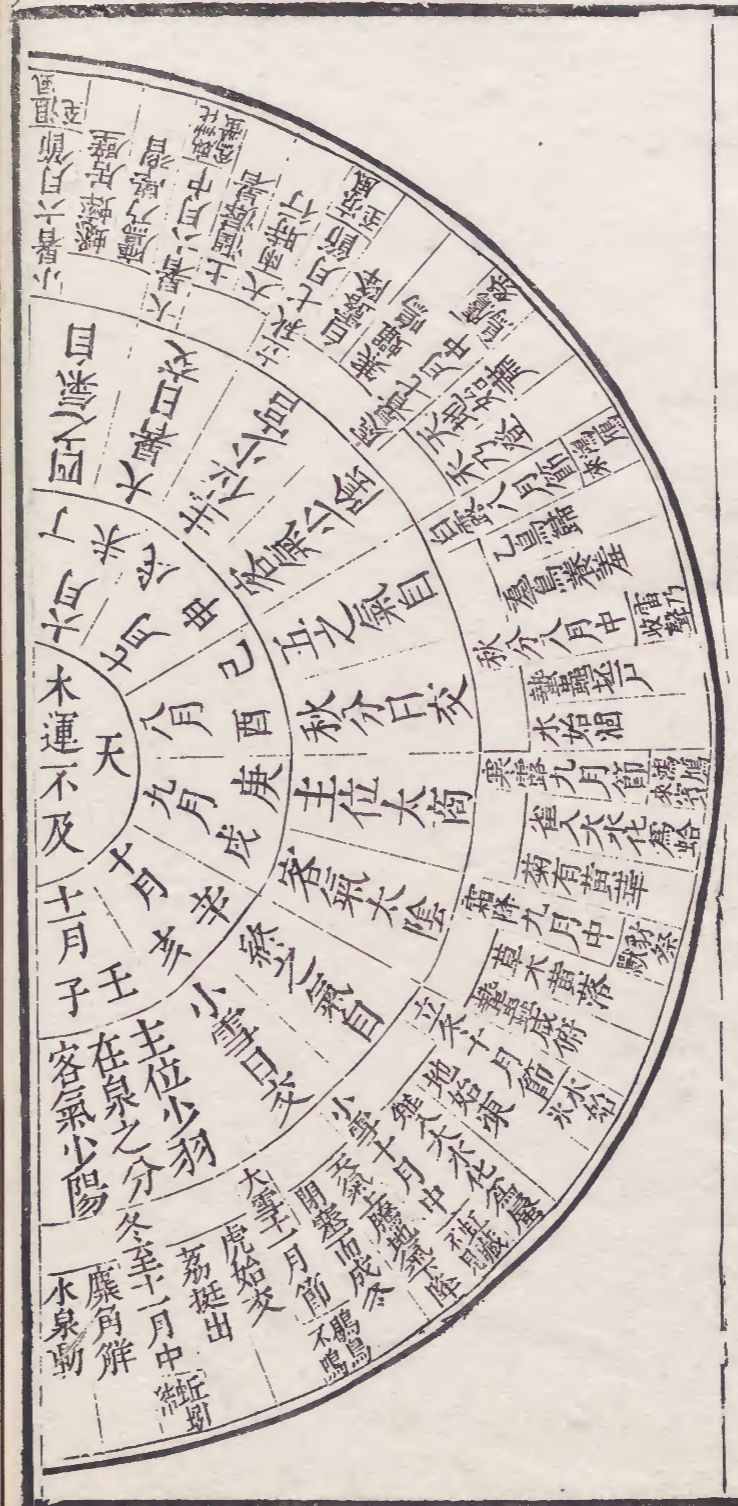 木運不及
天
六月
丁未
七月
戊申
八月
己酉
九月
庚戌
十月
辛亥
十一月
壬子
四之氣自
大暑日交
主位少宮
客氣少陰
五之氣自
秋分日交
主位太商
客氣太陰
終之氣自
小雪日交
主位少羽
在泉之分
客氣少陽
小暑六月節
溫風至
蟋蟀居壁
鷹乃學習
大暑六月中
腐草化螢
土潤溽暑
大雨時行
立秋七月節
涼風至
白露降
寒蟬鳴
處暑七月中
鷹祭鳥
天地始肅
禾乃登
白露八月節
鴻鴈來
乙鳥歸
羣鳥養羞
秋分八月中
雷乃收聲
蟄蟲坯戶
水始涸
寒露九月節
鴻鴈來賓
雀入大水化爲蛤
菊有黃華
霜降九月中
豺祭獸
草木黃落
蟄蟲咸俯
立冬十月節
水始氷
地始凍
雉入大水化爲蜃
小雪十月中
虹藏不見
天氣上騰地氣下降
閉塞而成冬
大雪十一月節
鶡鳥不鳴
虎始交
荔挺出
冬至十一月中
蚯蚓結
麋角解
水泉動